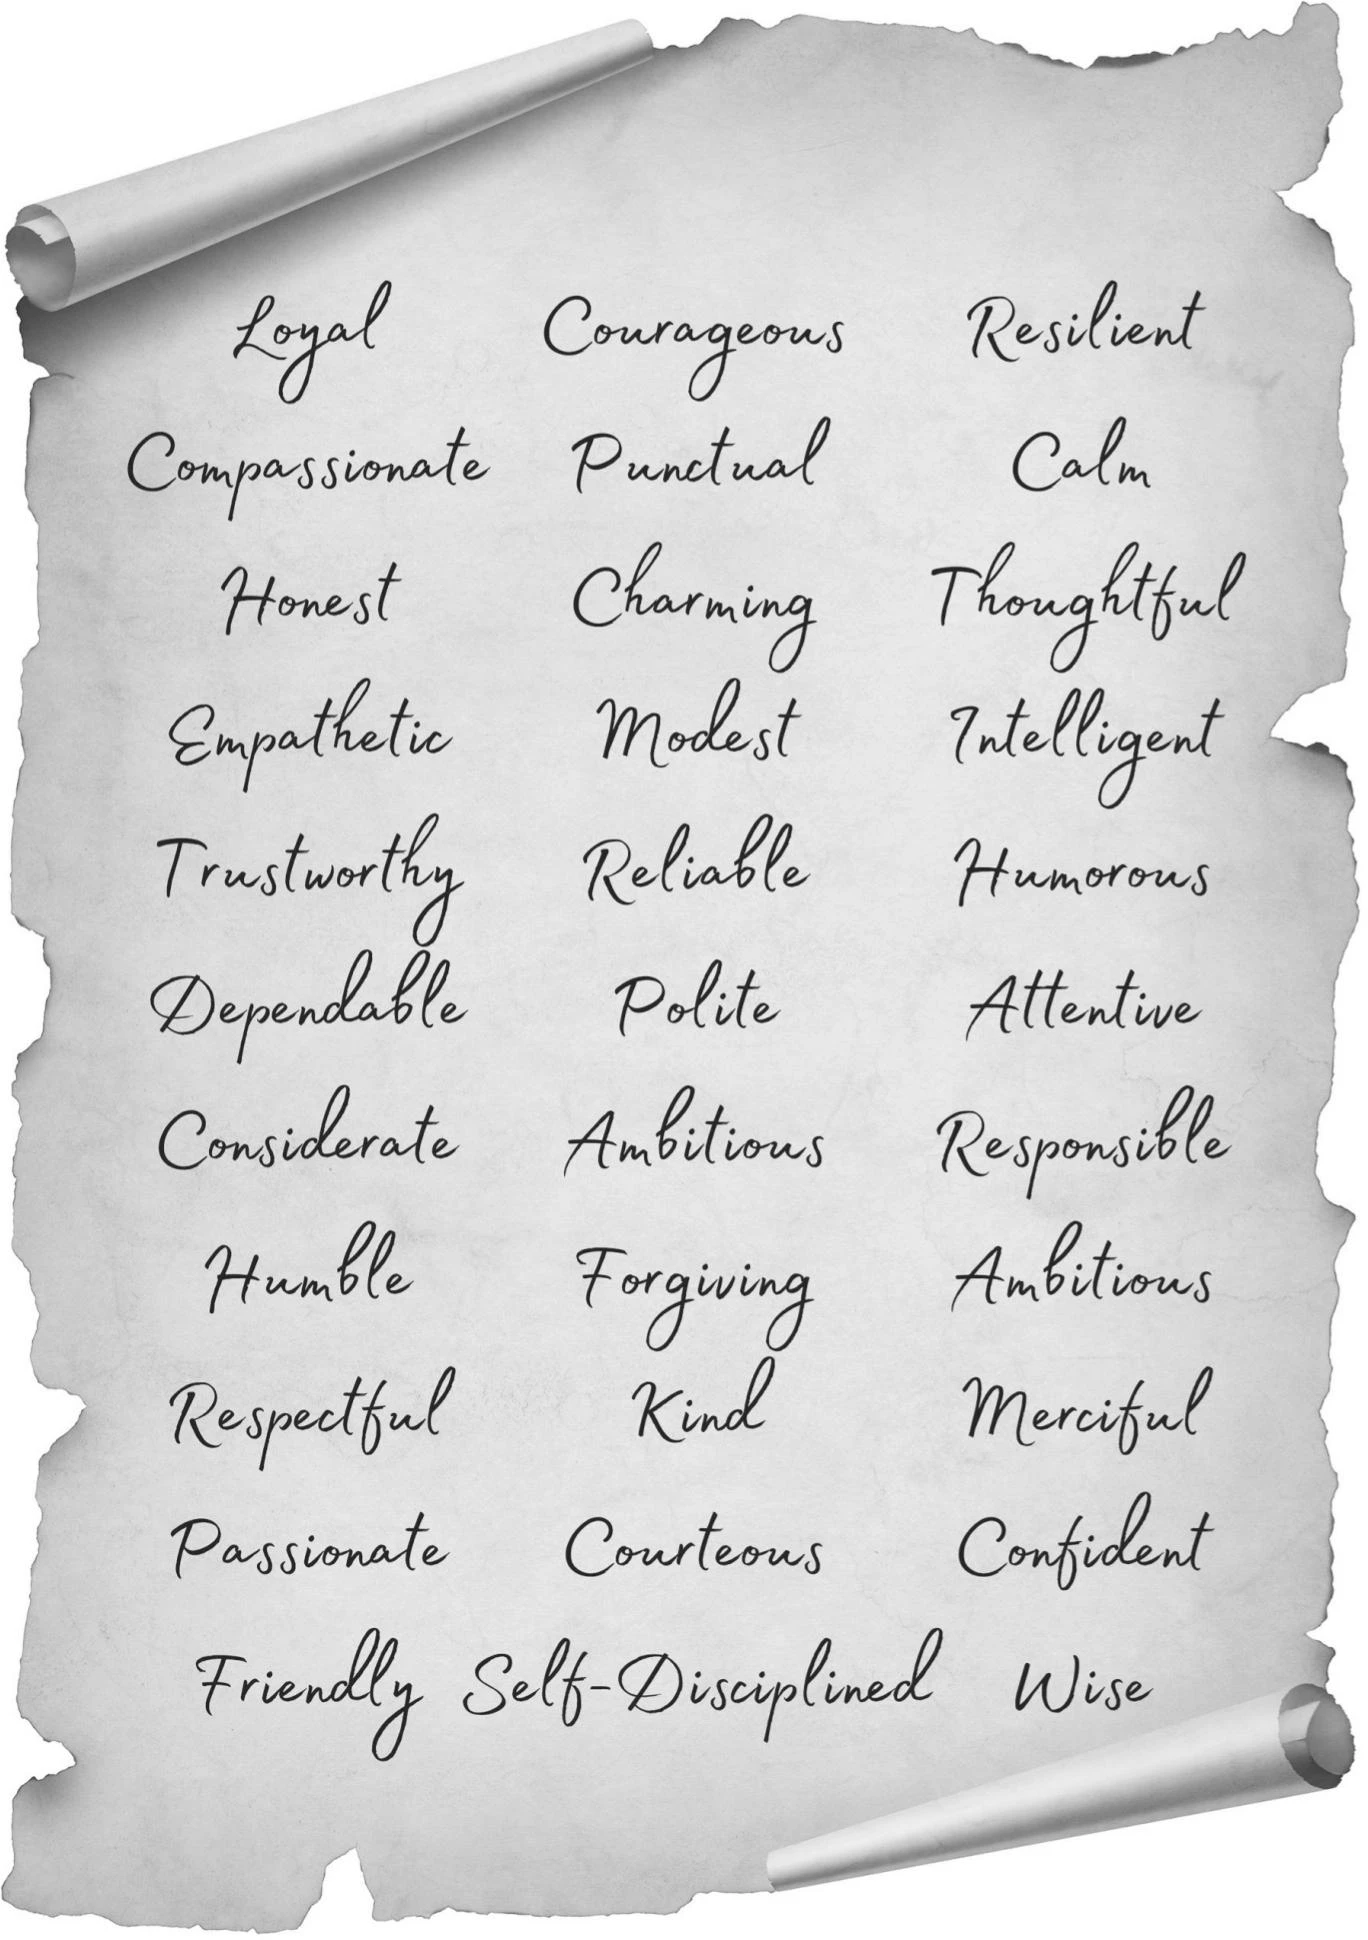 Loyal Courageous Resilient
Compassionate Punctual Calm
Honest Charming Thoughtful
Empathetic Modest Intelligent
Trustworthy Reliable Humorous
Dependable Polite Attentive
Considerate Ambitious Responsible
Humble Forgiving Ambitious
Respectful Kind Merciful
Passionate Courteous Confident
Friendly Self-Disciplined Wise